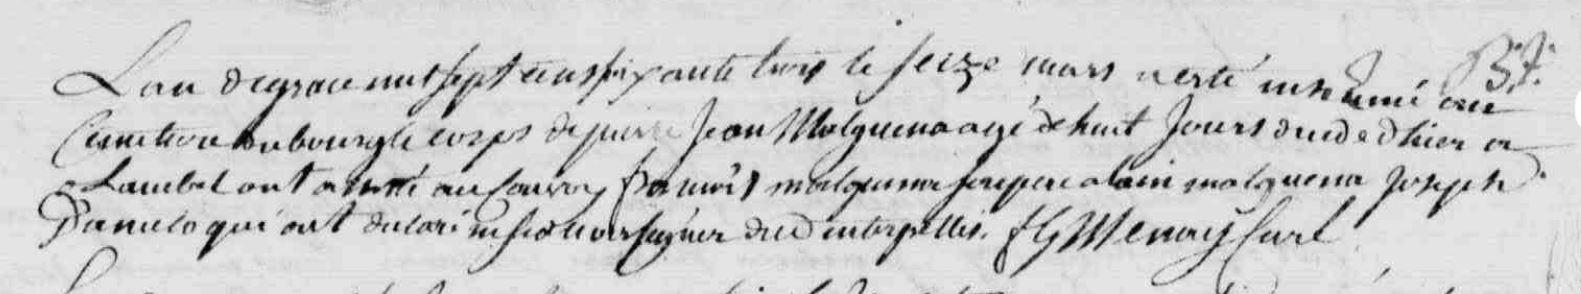 L'an de grace mil sept cens soixante trois le seize mars a esté inhumé au
Cimetiere du bourg le corps de pierre Jean Malguena agé de huit Jours decedé d'hier a
Lambel ont assisté au Convoy François malguena son pere alain malguena Joseph
Daniélo qui ont declaré ne scavoir signer de ce interpellés. Curé